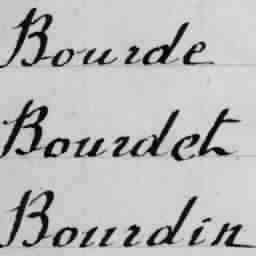 Bourde
Bourdet
Bourdin